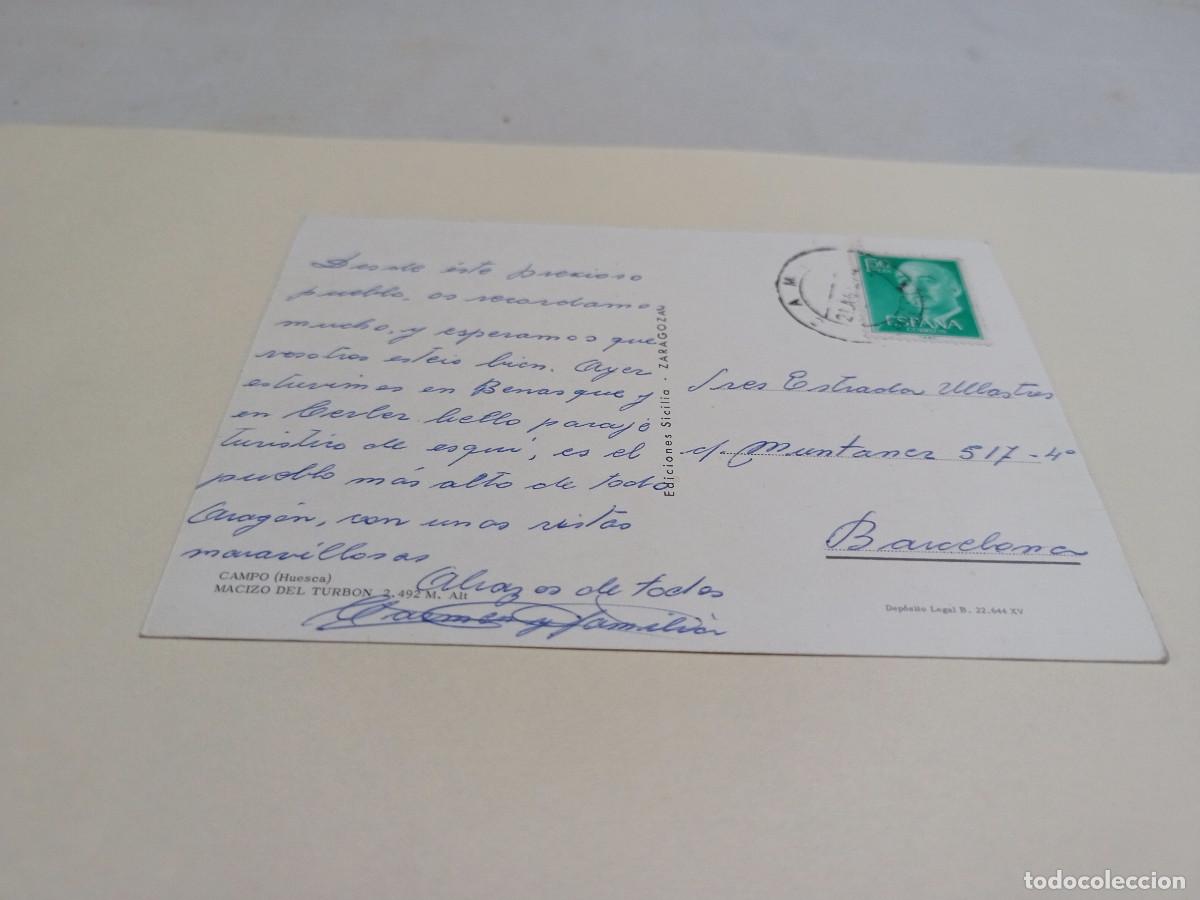 Desde éste precioso
pueblo, os recordamos
mucho, y esperamos que
vosotros esteis bien. Ayer
estuvimos en Benasque y
en Cerler bello paraje
turistico de esquí, es el
pueblo más alto de todo
Aragón, con unas vistas
maravillosas
Abrazos de todos
Carmen y familia
CAMPO (Huesca)
MACIZO DEL TURBON 2.492 M. Alt
Ediciones Sicilia · ZARAGOZA
CAM
ESPAÑA
CORREOS
Sres Estrada Ullastres
c/. Muntaner 517 - 4º
Barcelona
Depósito Legal B. 22.644 XV
todocoleccion